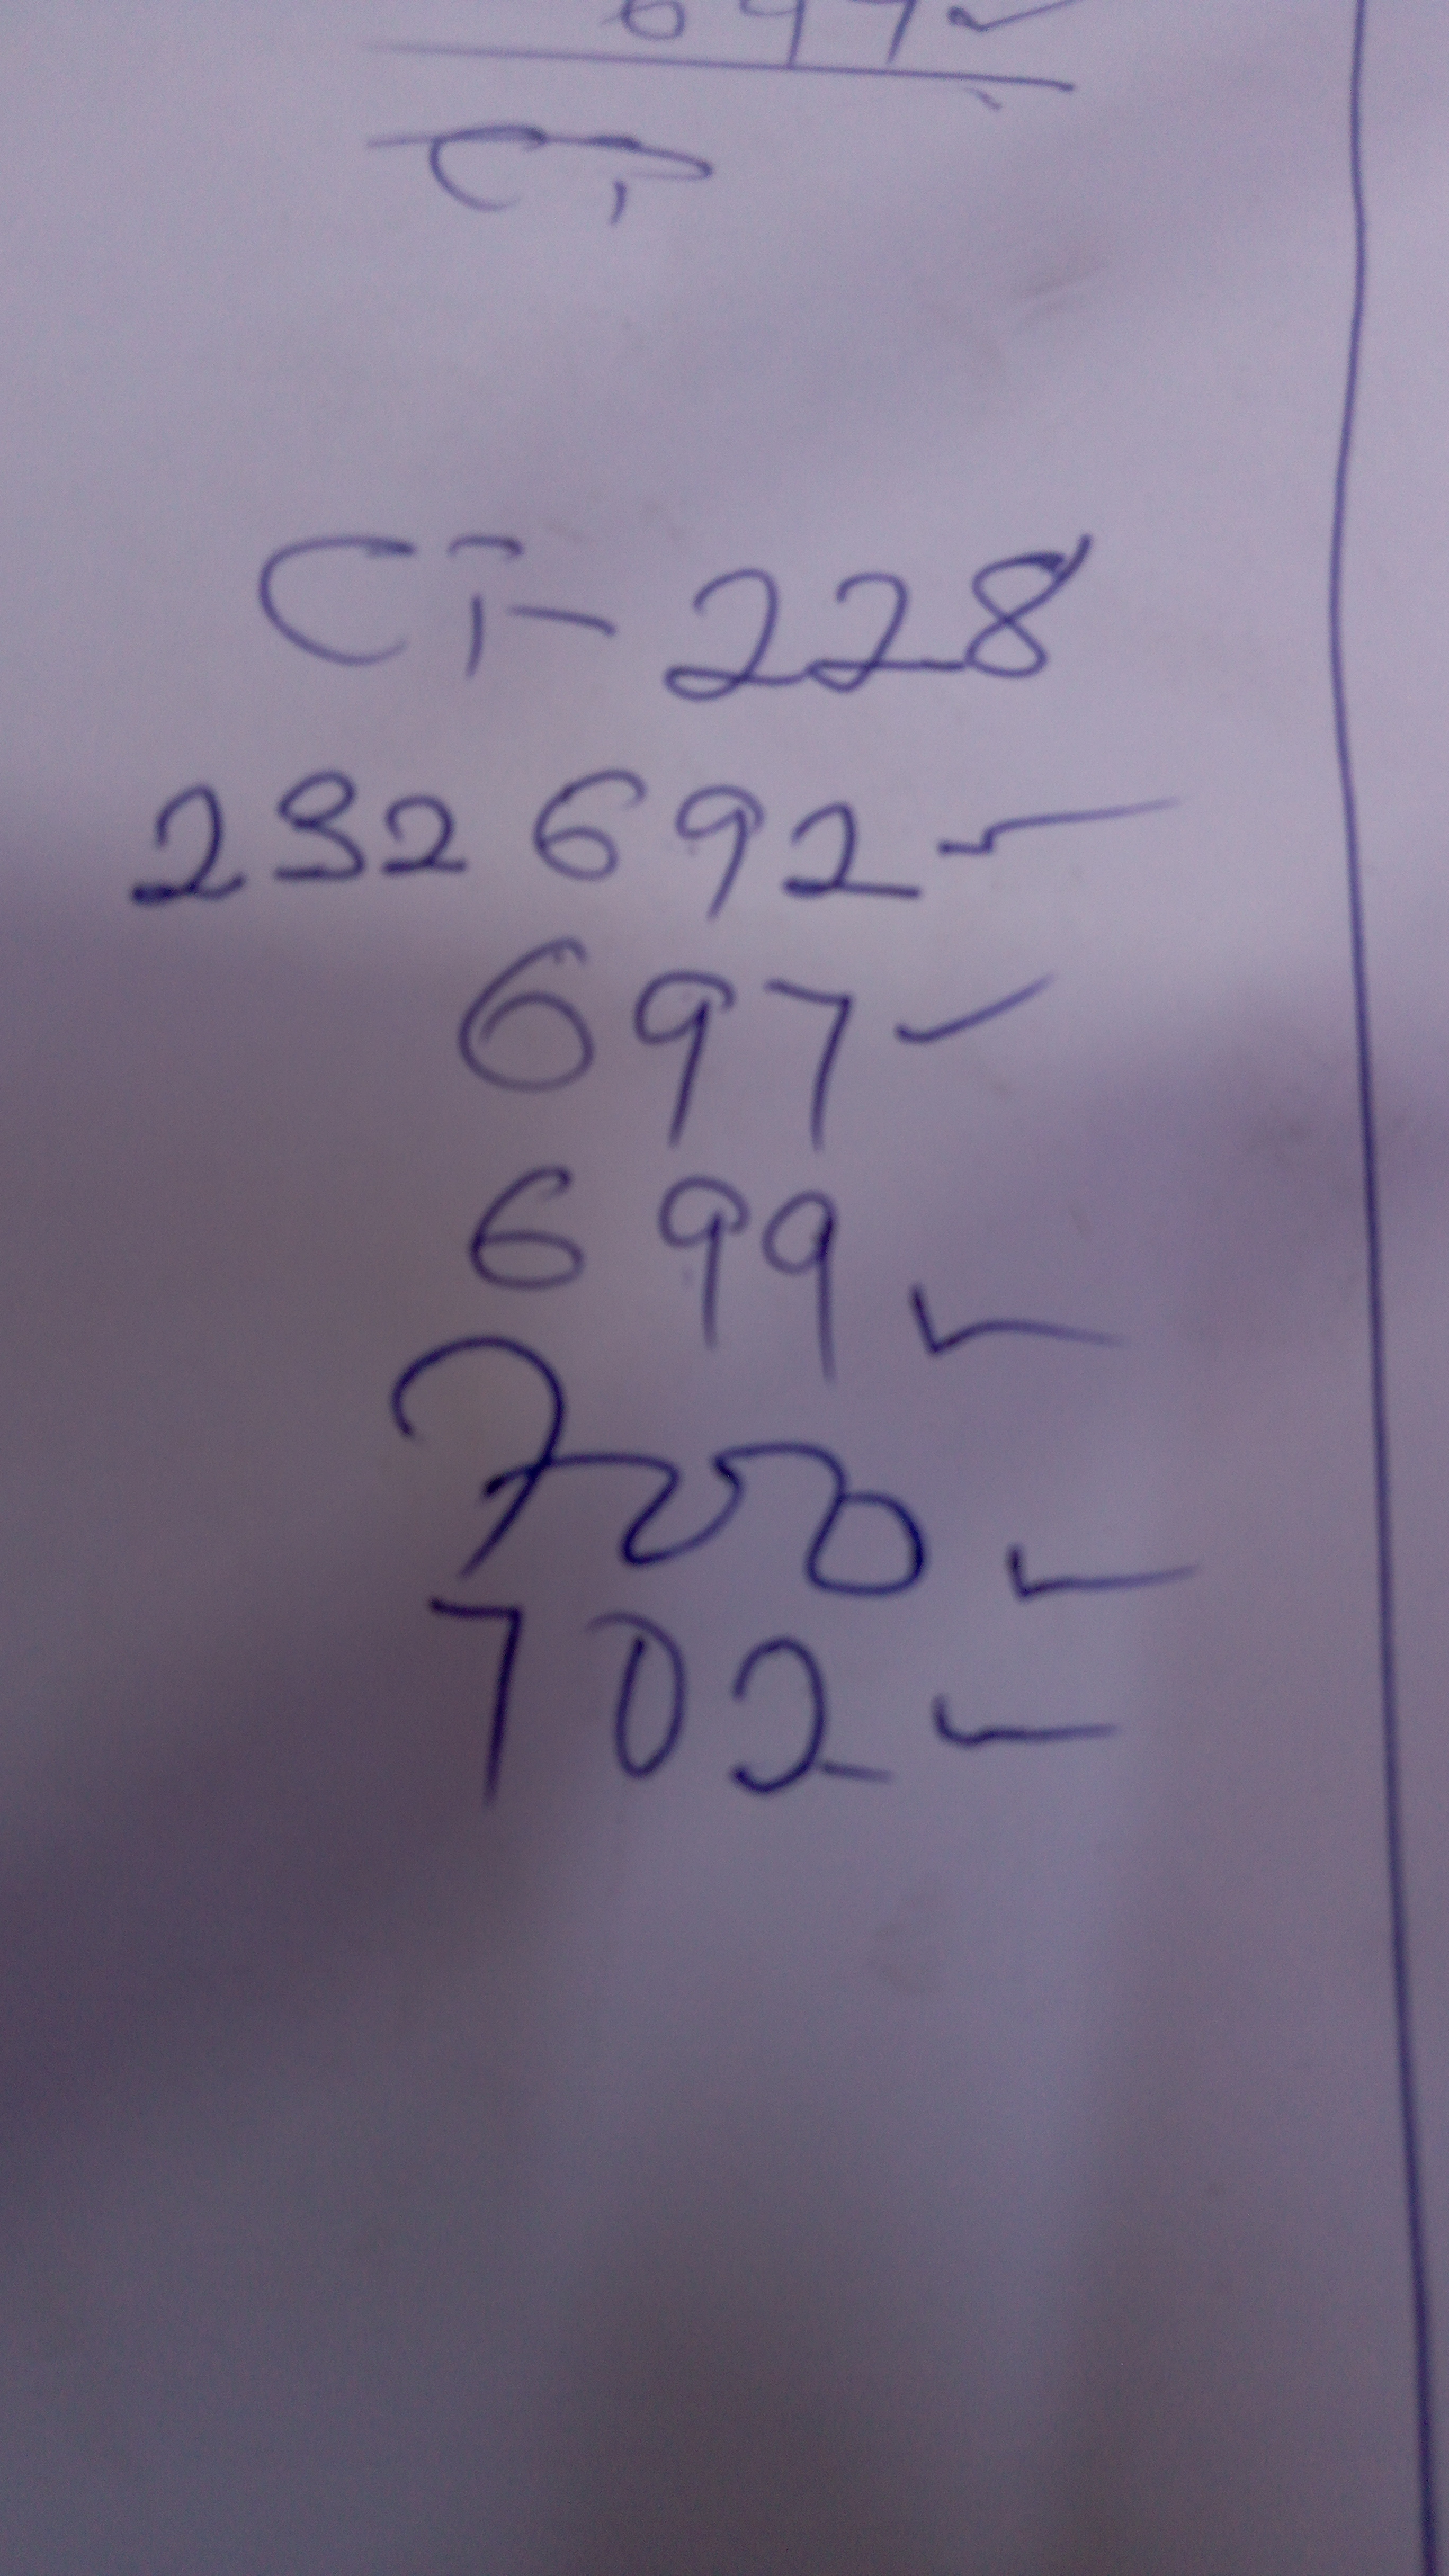 697✓
CT
CT-228
232692✓
697✓
699✓
700✓
702✓